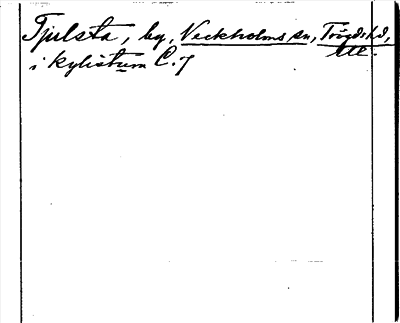 Tjulsta, by, Veckholms sn, Trögds hd,
Ul.
i kylistum C. 7